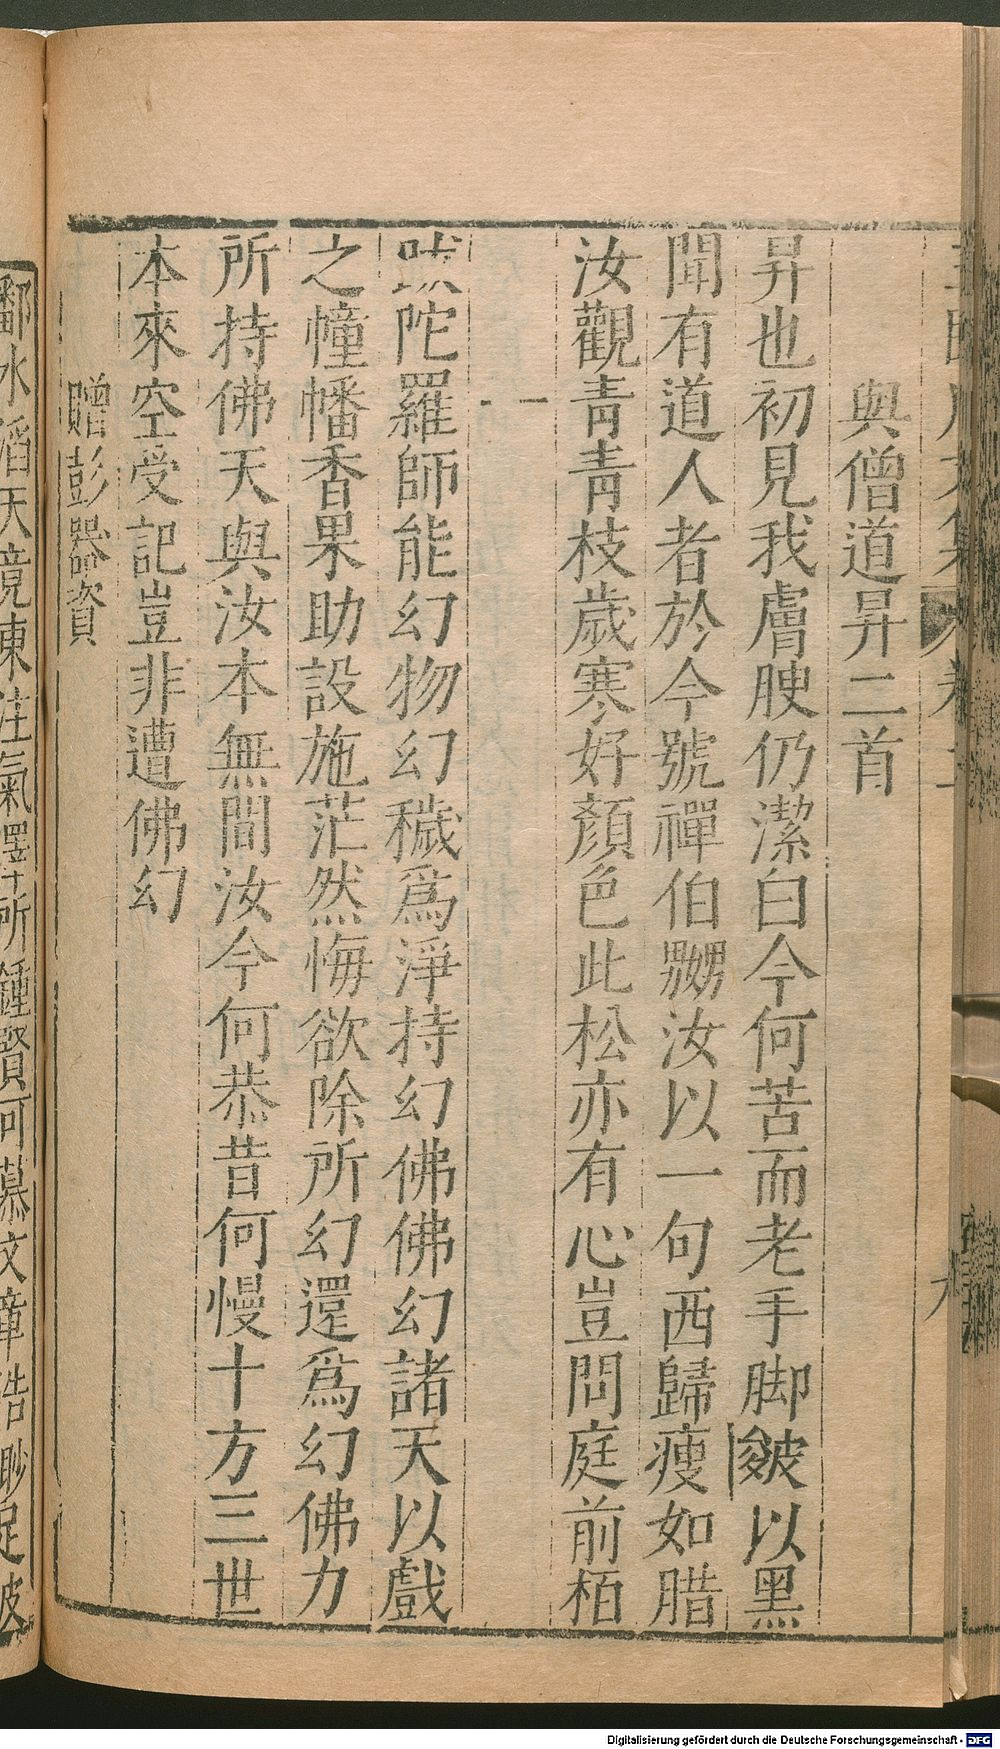 與僧道昇二首
昇也初見我膚腴仍潔白今何苦而老手脚皴以黑
聞有道人者於今號禪伯嬲汝以一句西歸瘦如腊
汝觀青青枝歲寒好顏色此松亦有心豈問庭前栢
二
跋陀羅師能幻物幻穢爲淨持幻佛佛幻諸天以戲
之幢幡香果助設施茫然悔欲除所幻還爲幻佛力
所持佛天與汝本無間汝今何恭昔何慢十方三世
本來空受記豈非遭佛幻
贈彭器資
鄱水滔天竟東注氣澤所鍾賢可慕文章浩眇足波
Digitalisierung gefördert durch die Deutsche Forschungsgemeinschaft - DFG